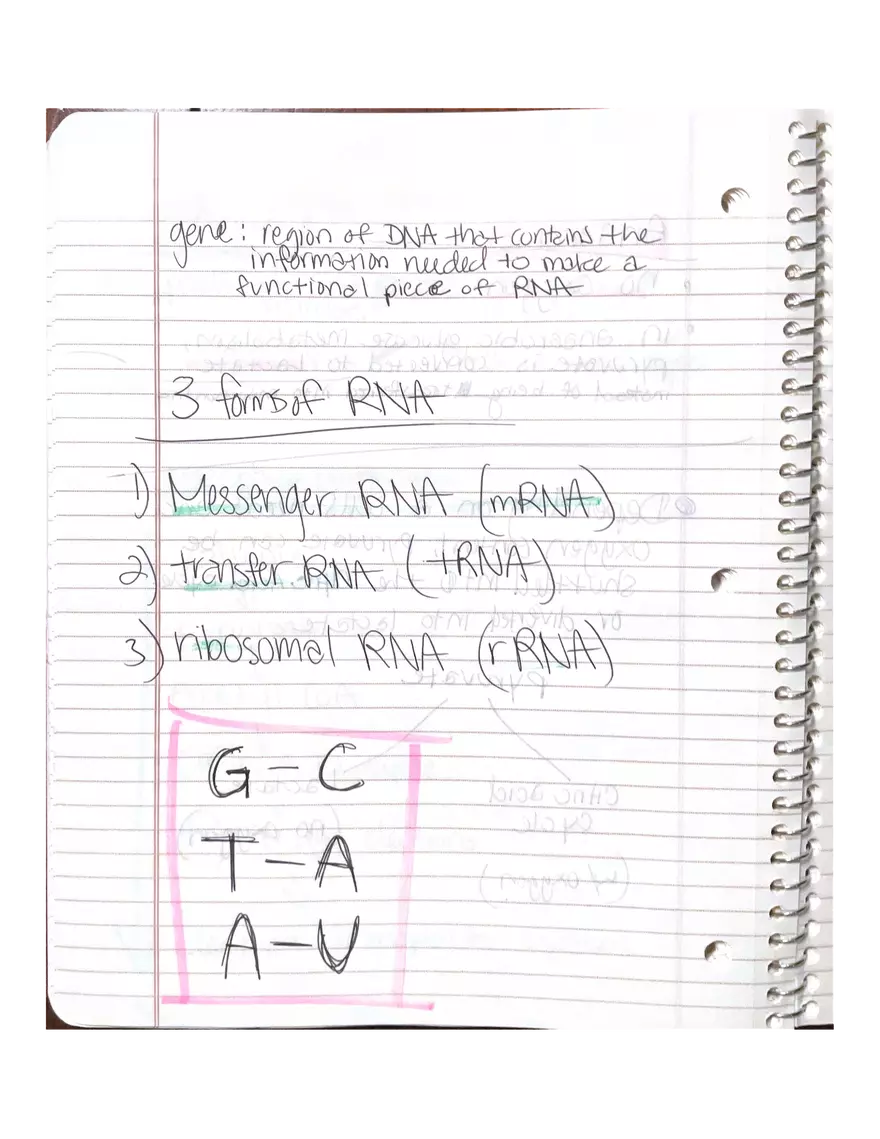 gene: region of DNA that contains the
information needed to make a
functional piece of RNA
3 forms of RNA
1) Messenger RNA (mRNA)
2) transfer RNA (tRNA)
3) ribosomal RNA (rRNA)
G - C
T - A
A - U